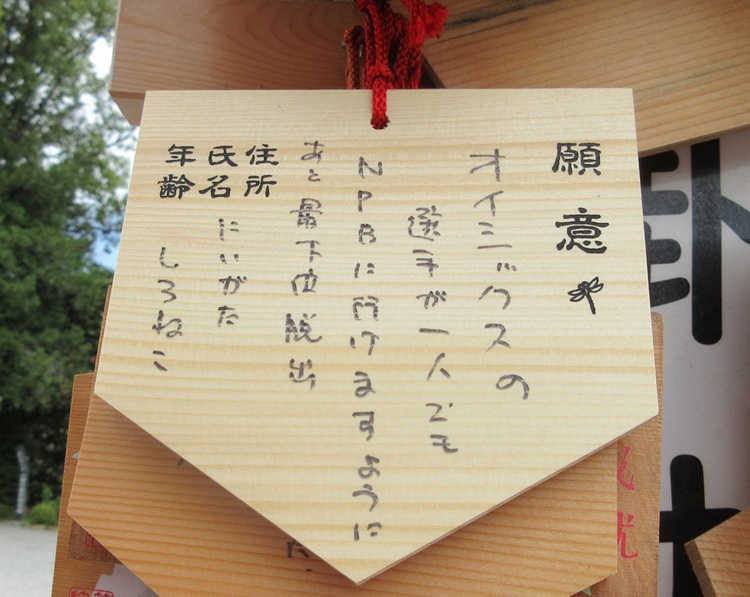 願意
オイシックスの
選手が一人でも
NPBに行けますように
あと最下位脱出
住所
氏名
年齢
にいがた
しろねこ